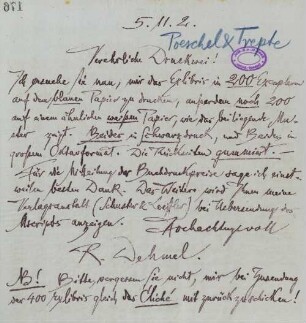 176
5.11.2.
Poeschel & Trepte
Verehrliche Druckerei!
Ich ersuche Sie nun, mir das Exlibris in 200 Exemplaren
auf dem blauen Papier zu drucken, außerdem noch 200
auf einem ähnlichen weißen Papier, wie das beiliegende Mu-
ster zeigt. Beides in Schwarzdruck, und Beides in
großem Oktavformat. Die Rückseiten gummiert. —
Für die Mitteilung der Buchdruckpreise sage ich einst-
weilen besten Dank. Das Weitere wird Ihnen meine
Verlagsanstalt (Schuster & Loeffler) bei Uebersendung des
Mscripts anzeigen. Hochachtungsvoll
R. Dehmel.
NB! Bitte, vergessen Sie nicht, mir bei Zusendung
der 400 Exlibris gleich das Cliché mit zurückzuschicken!